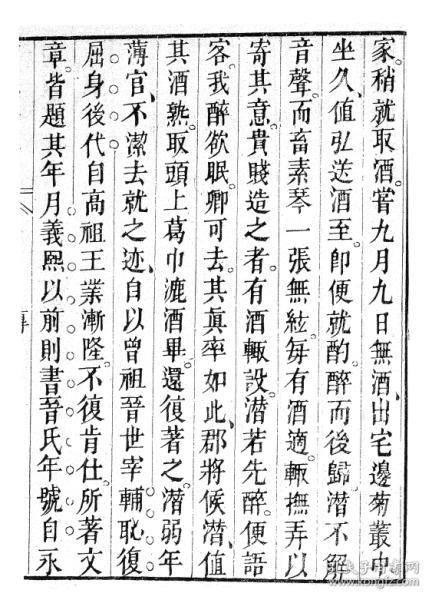 家。稍就取酒。嘗九月九日無酒、出宅邊菊叢中
坐久、值弘送酒至。卽便就酌。醉而後歸。潛不解
音聲。而畜素琴一張無絃。每有酒適。輙撫弄以
寄其意。貴賤造之者。有酒輙設。潛若先醉。便語
客。我醉欲眠。卿可去。其眞率如此。郡將候潛、值
其酒熟。取頭上葛巾漉酒畢。還復著之。潛弱年
薄官、不潔去就之迹、自以曾祖晉世宰輔恥復
屈身後代自高祖王業漸隆。不復肯仕。所著文
章。皆題其年月義熙以前則書晉氏年號自永